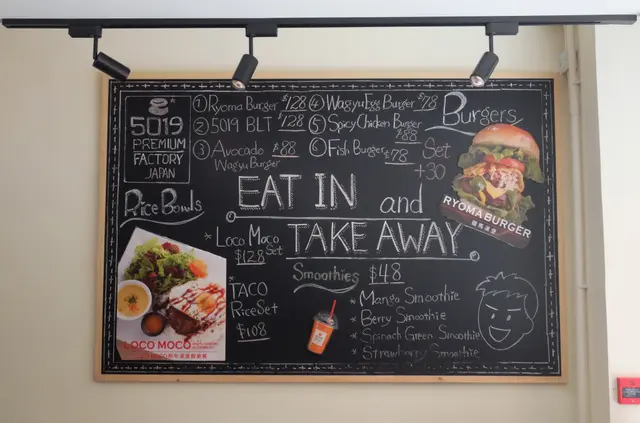 5019
PREMIUM
FACTORY
JAPAN
① Ryoma Burger $128
② 5019 BLT $128
③ Avocado $88
Wagyu Burger
④ Wagyu Egg Burger $78
⑤ Spicy Chicken Burger
$88
⑥ Fish Burger $78
Burgers
Set
+30
RYOMA BURGER
EAT IN and
TAKE AWAY
Rice Bowls
* Loco Moco
$128 Set
* TACO
Rice Set
$108
LOCO MOCO
Smoothies $48
* Mango Smoothie
* Berry Smoothie
* Spinach Green Smoothie
* Strawberry Smoothie